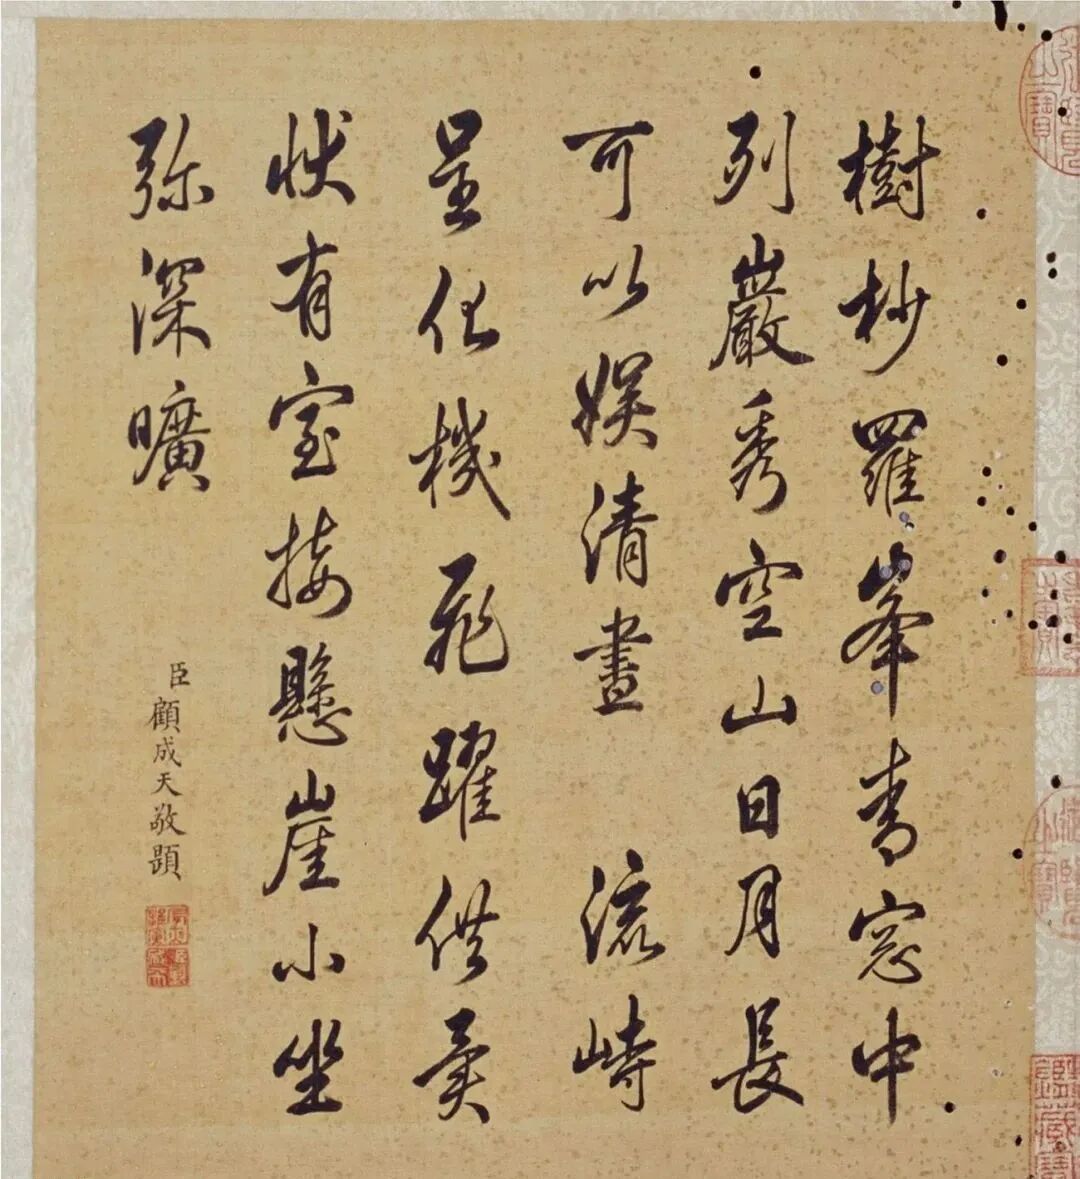 樹杪羅峯青窓中
列巖秀空山日月長
可以娛清晝 流峙
呈化機飛躍供異
狀有室接懸崖小坐
弥深曠
臣顧成天敬題